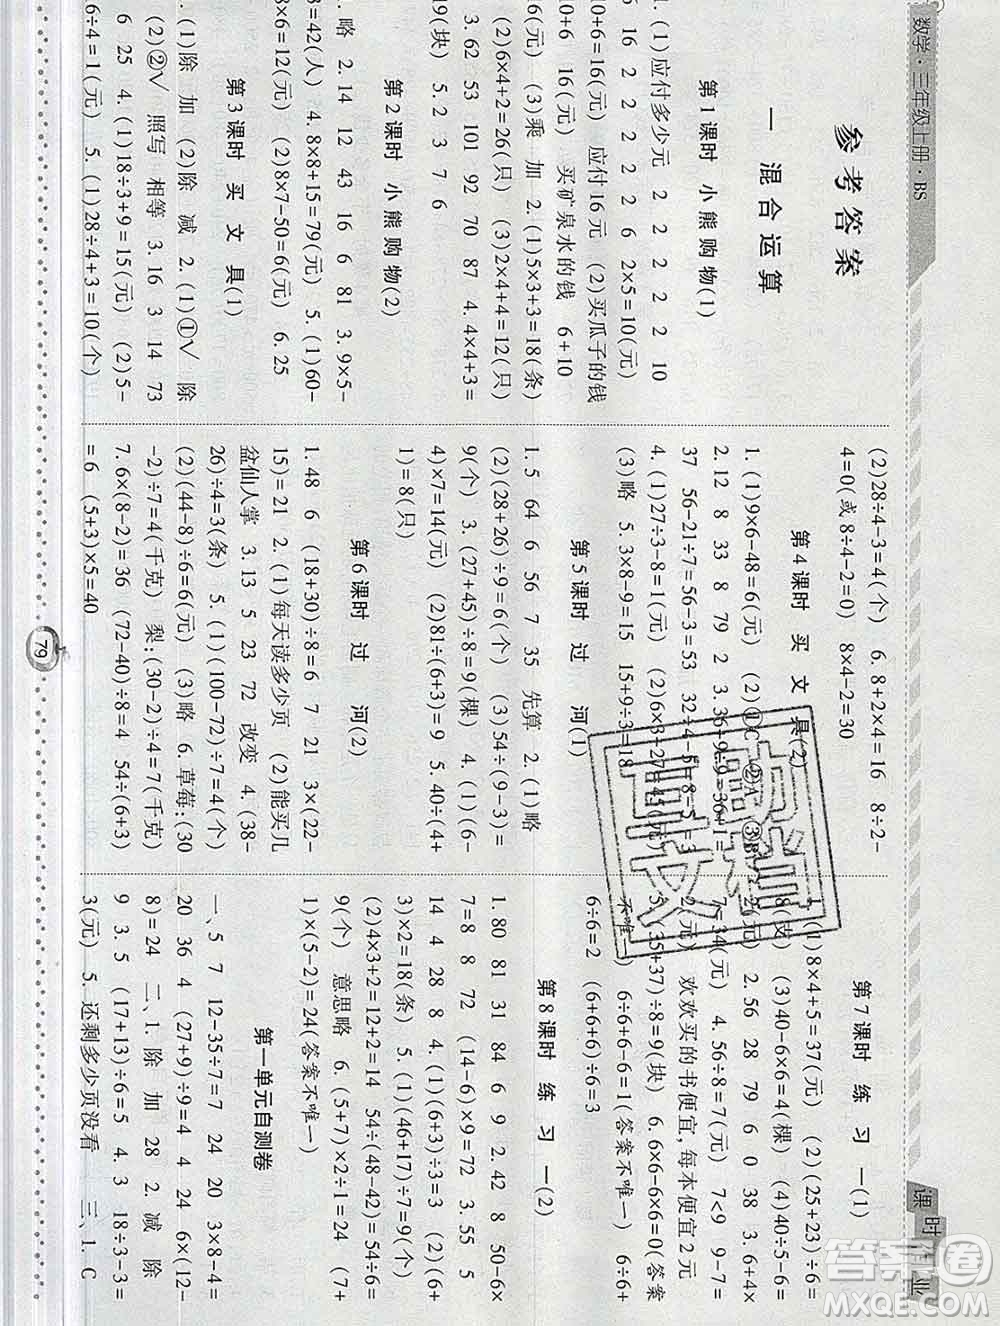 数学·三年级上册·BS
参考答案
一 混合运算
第1课时 小熊购物(1)
1. (1)应付多少元 2 2 2 2 10
6 16 2 2 2 6 2×5=10(元)
10+6=16(元) 应付16元 (2)买瓜子的钱
10+6 16(元) 买矿泉水的钱 6+10
16(元) (3)乘 加 2. (1)5×3+3=18(条)
(2)6×4+2=26(只) (3)2×4+4=12(只)
3. 62 53 101 92 70 87 4. 4×4+3=
19(块) 5. 2 3 7 6
第2课时 小熊购物(2)
1. 略 2. 14 12 43 16 6 81 3. 9×5-
3=42(人) 4. 8×8+15=79(元) 5. (1)60-
8×6=12(元) (2)8×7-50=6(元) 6. 25
第3课时 买文具(1)
1. (1)除 加 (2)除 减 2. (1)①√ 除
(2)②√ 照写 相等 3. 16 3 14 73
6 25 4. (1)18÷3+9=15(元) (2)5-
6÷4=1(元) 5. (1)28÷4+3=10(个)
(2)28÷4-3=4(个) 6. 8+2×4=16 8÷2-
4=0(或8÷4-2=0) 8×4-2=30
第4课时 买文具(2)
1. (1)9×6-48=6(元) (2)①C ②A ③B
2. 12 8 33 8 79 2 3. 36÷9 9 36+1=
37 56-21÷7=56-3=53 32÷4-5=8-5=3
4. (1)27÷3-8=1(元) (2)6×3+27=45(元)
(3)略 5. 3×8-9=15 15+9÷3=18
第5课时 过河(1)
1. 5 64 6 56 7 35 先算 2. (1)略
(2)(28+26)÷9=6(个) (3)54÷(9-3)=
9(个) 3. (27+45)÷8=9(棵) 4. (1)(6-
4)×7=14(元) (2)81÷(6+3)=9 5. 40÷(4+
1)=8(只)
第6课时 过河(2)
1. 48 6 (18+30)÷8=6 7 21 3×(22-
15)=21 2. (1)每天读多少页 (2)能买几
盆仙人掌 3. 13 5 23 72 改变 4. (38-
26)÷4=3(条) 5. (1)(100-72)÷7=4(个)
(2)(44-8)÷6=6(元) (3)略 6. 草莓:(30
-2)÷7=4(千克) 梨:(30-2)÷4=7(千克)
7. 6×(8-2)=36 (72-40)÷8=4 54÷(6+3)
=6 (5+3)×5=40
第7课时 练习一(1)
(1)8×4+5=37(元) (2)(25+23)÷6=
8(支) (3)40-6×6=4(棵) (4)40÷5-
2(元) 2. 56 28 79 6 0 38 3. 6+4×
7=34(元) 4. 56÷8=7(元) 7<9 9-7=
2(元) 欢欢买的书便宜,每本便宜2元
5. (35+37)÷8=9(块) 6. 6×6×6=0(答案
不唯一) 6÷6+6-6=1(答案不唯一) 6÷6+
6÷6=2 (6+6+6)÷6=3
第8课时 练习一(2)
1. 80 81 31 84 6 9 2. 42 8 50-6×
7=8 8 72 (14-6)×9=72 3. 55 5
14 4 28 8 4. (1)(6+3)÷3=3 (2)(6+
3)×2=18(条) 5. (1)(46+17)÷7=9(个)
(2)4×3+2=14(元) 54÷(48-42)=54÷6=
9(个) 意思略 6. (5+7)×2÷1=24 (7+
1)×(5-2)=24(答案不唯一)
第一单元自测卷
一、5 7 12-35÷7=7 24 20 3×8-4=
20 36 4 (27+9)÷9=4 4 24 6×(12-
8)=24 二、1. 除 加 28 2. 减 除
9 3. 5 (17+13)÷6=5 4. 3 18÷3-3=
3(元) 5. 还剩多少页没看 三、1. C
79
答案圈
MXQE.COM